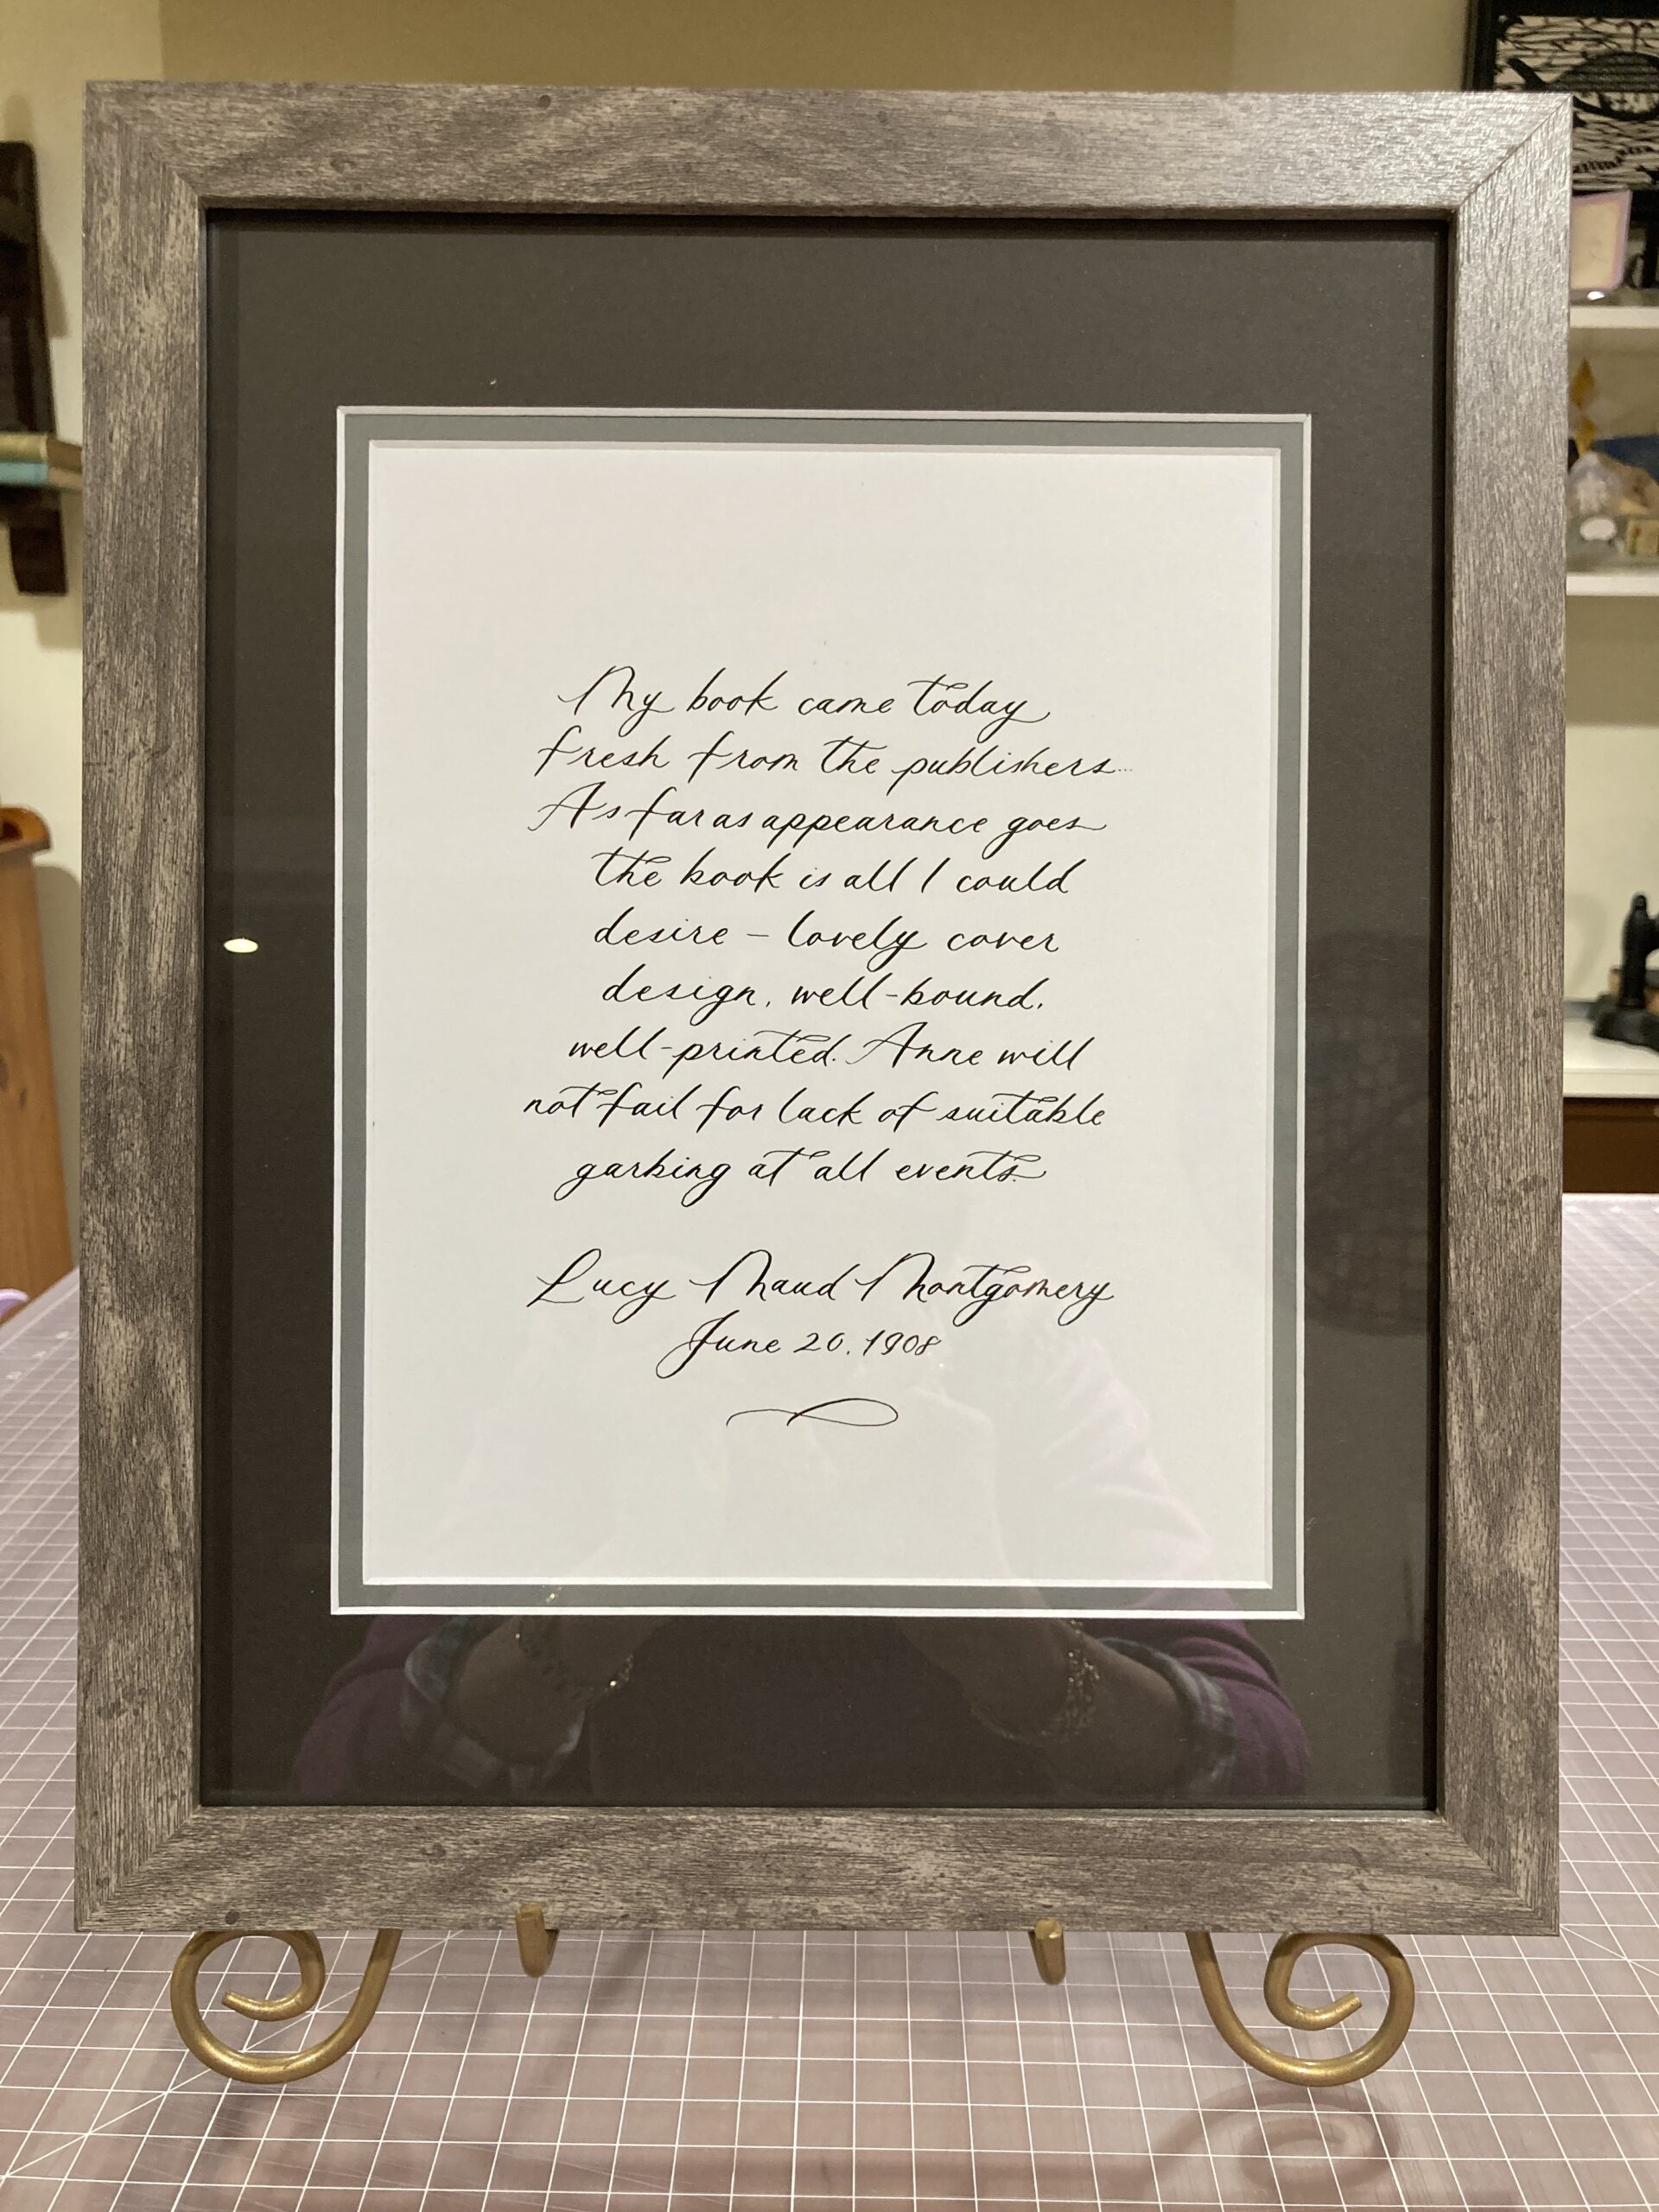 My book came today
fresh from the publishers...
As far as appearance goes
the book is all I could
desire – lovely cover
design, well-bound,
well-printed. Anne will
not fail for lack of suitable
garbing at all events.
Lucy Maud Montgomery
June 20, 1908